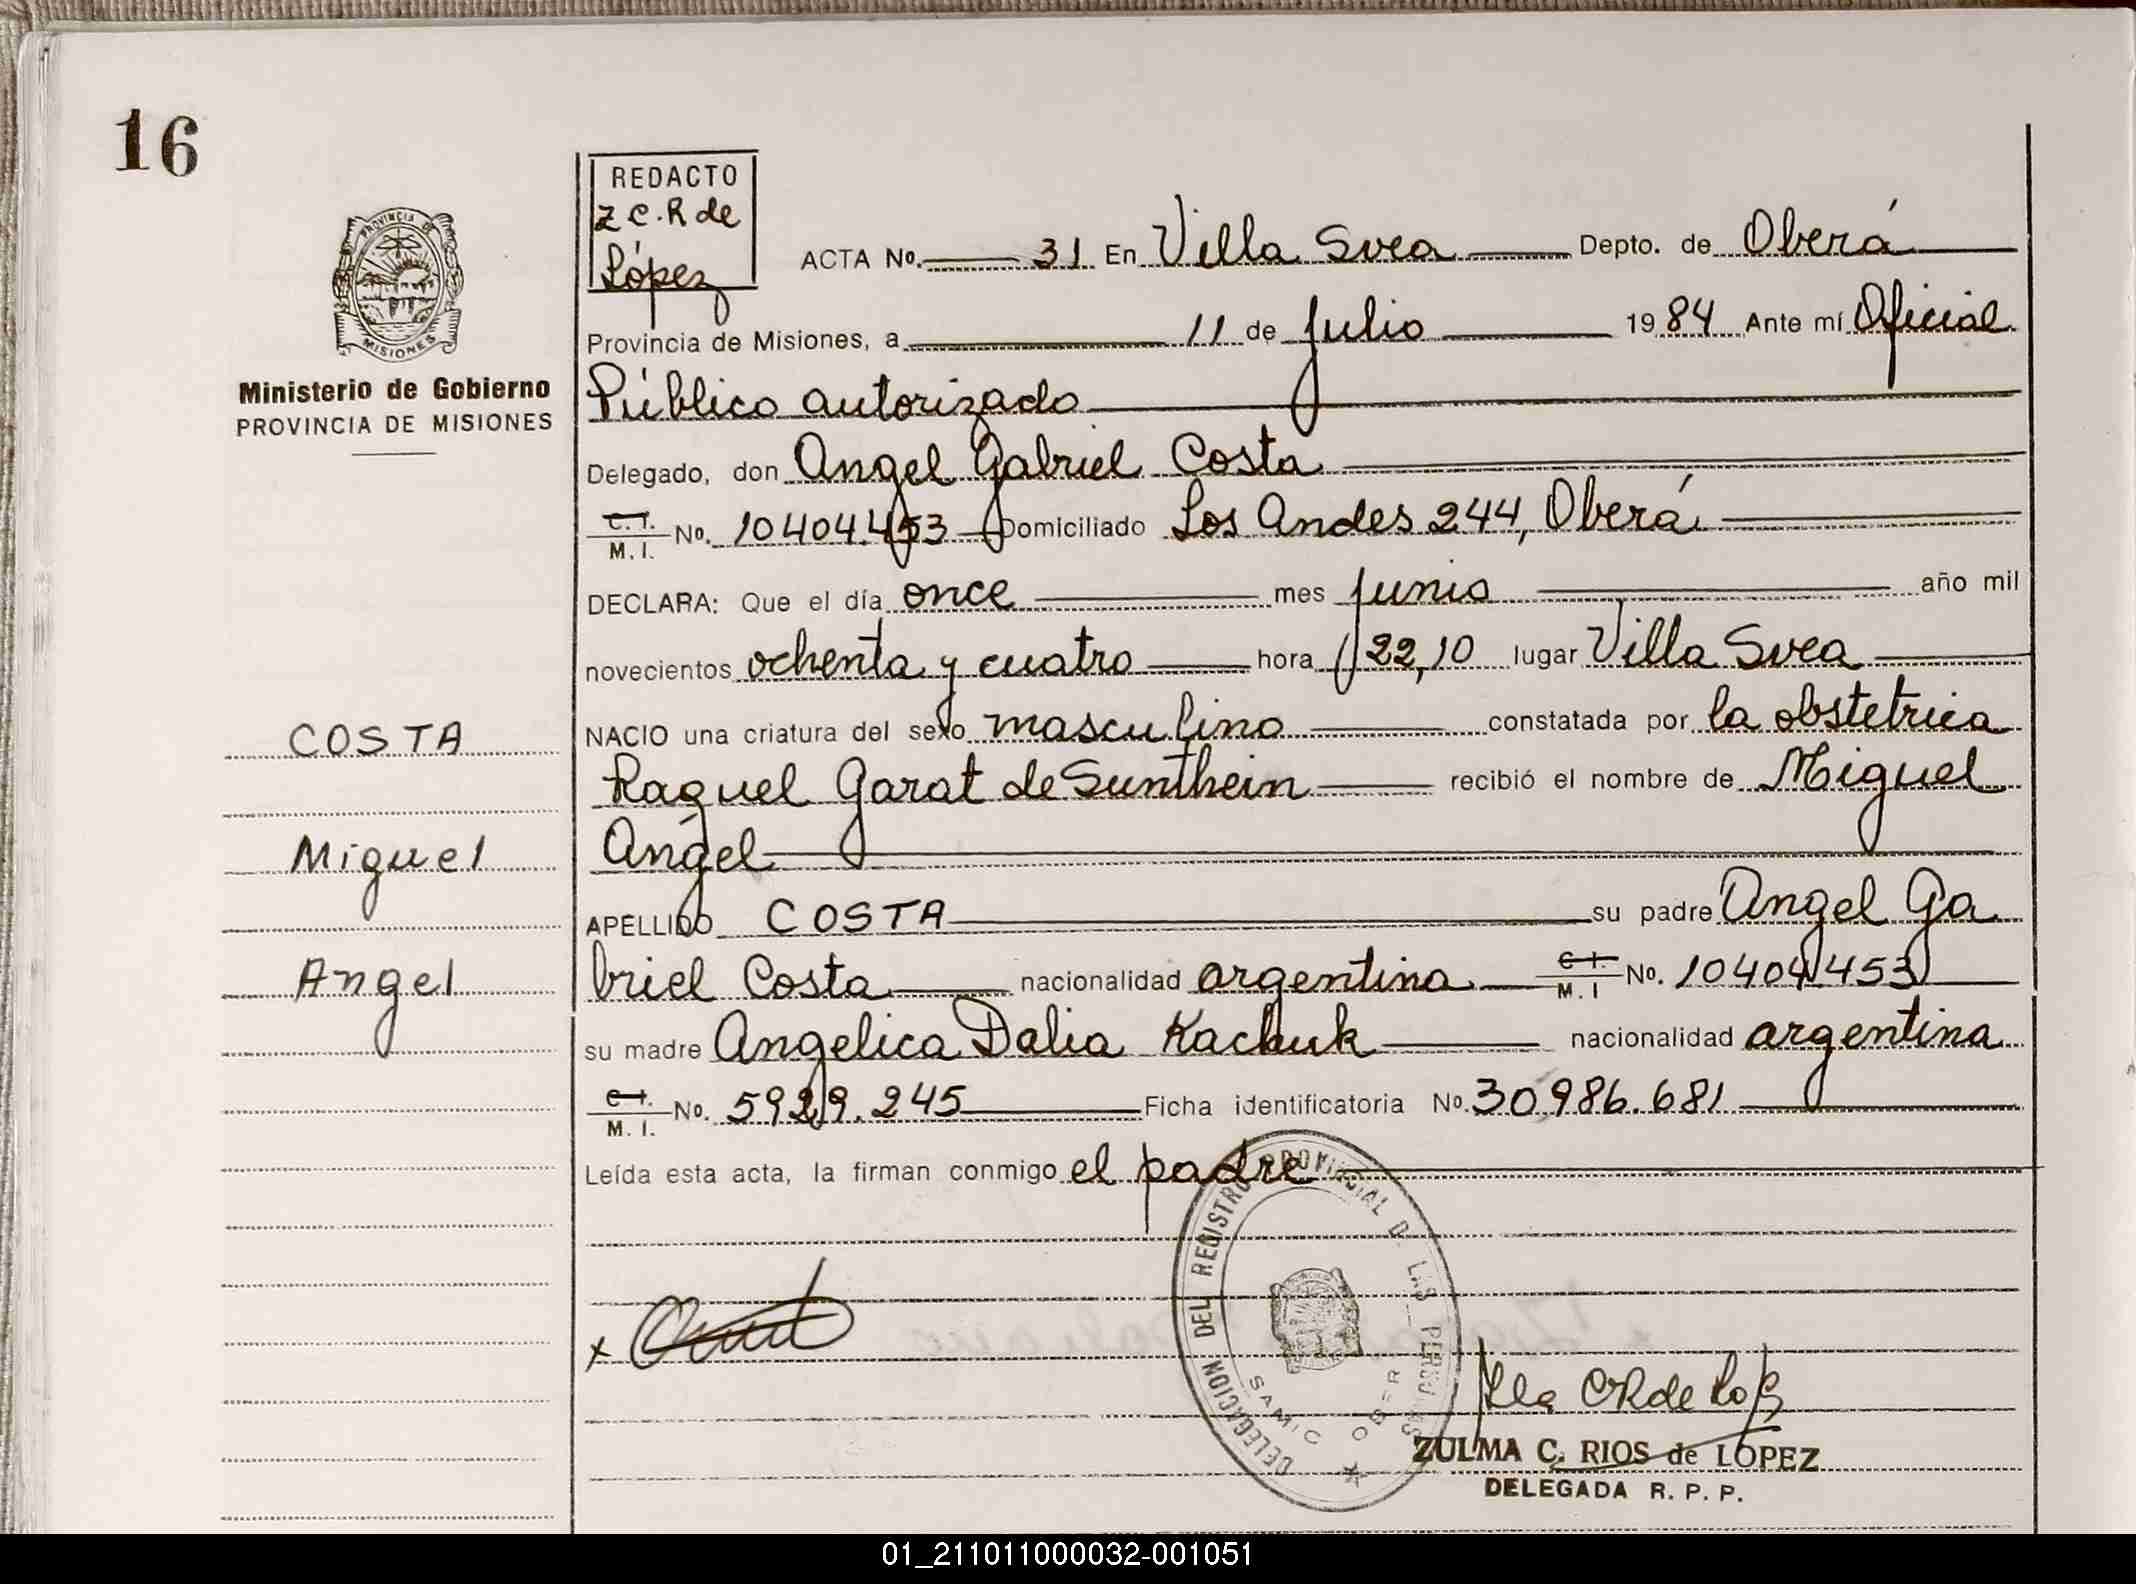 16
PROVINCIA DE
MISIONES
Ministerio de Gobierno
PROVINCIA DE MISIONES
REDACTO
Z C. R de
López
ACTA No. 31 En Villa Svea Depto. de Oberá
Provincia de Misiones, a 11 de julio 1984 Ante mí Oficial
Público autorizado
Delegado, don Angel Gabriel Costa
C. I. M. I. No. 10404.453 Domiciliado Los Andes 244, Oberá
DECLARA: Que el día once mes junio año mil
novecientos ochenta y cuatro hora 22,10 lugar Villa Svea
NACIO una criatura del sexo masculino constatada por la obstetrica
Raquel Garat de Sunthein recibió el nombre de Miguel
Angel
APELLIDO COSTA su padre Angel Ga
briel Costa nacionalidad argentina C. I. M. I No. 10404.453
su madre Angelica Dalia Kachuk nacionalidad argentina
C. I. M. I. No. 5929.245 Ficha identificatoria No. 30986.681
Leída esta acta, la firman conmigo el padre
COSTA
Miguel
Angel
x
DELEGACION DEL REGISTRO PROVINCIAL DE LAS PERSONAS
SAMIC OBER
ZULMA C. RIOS de LOPEZ
DELEGADA R. P. P.
01_211011000032-001051